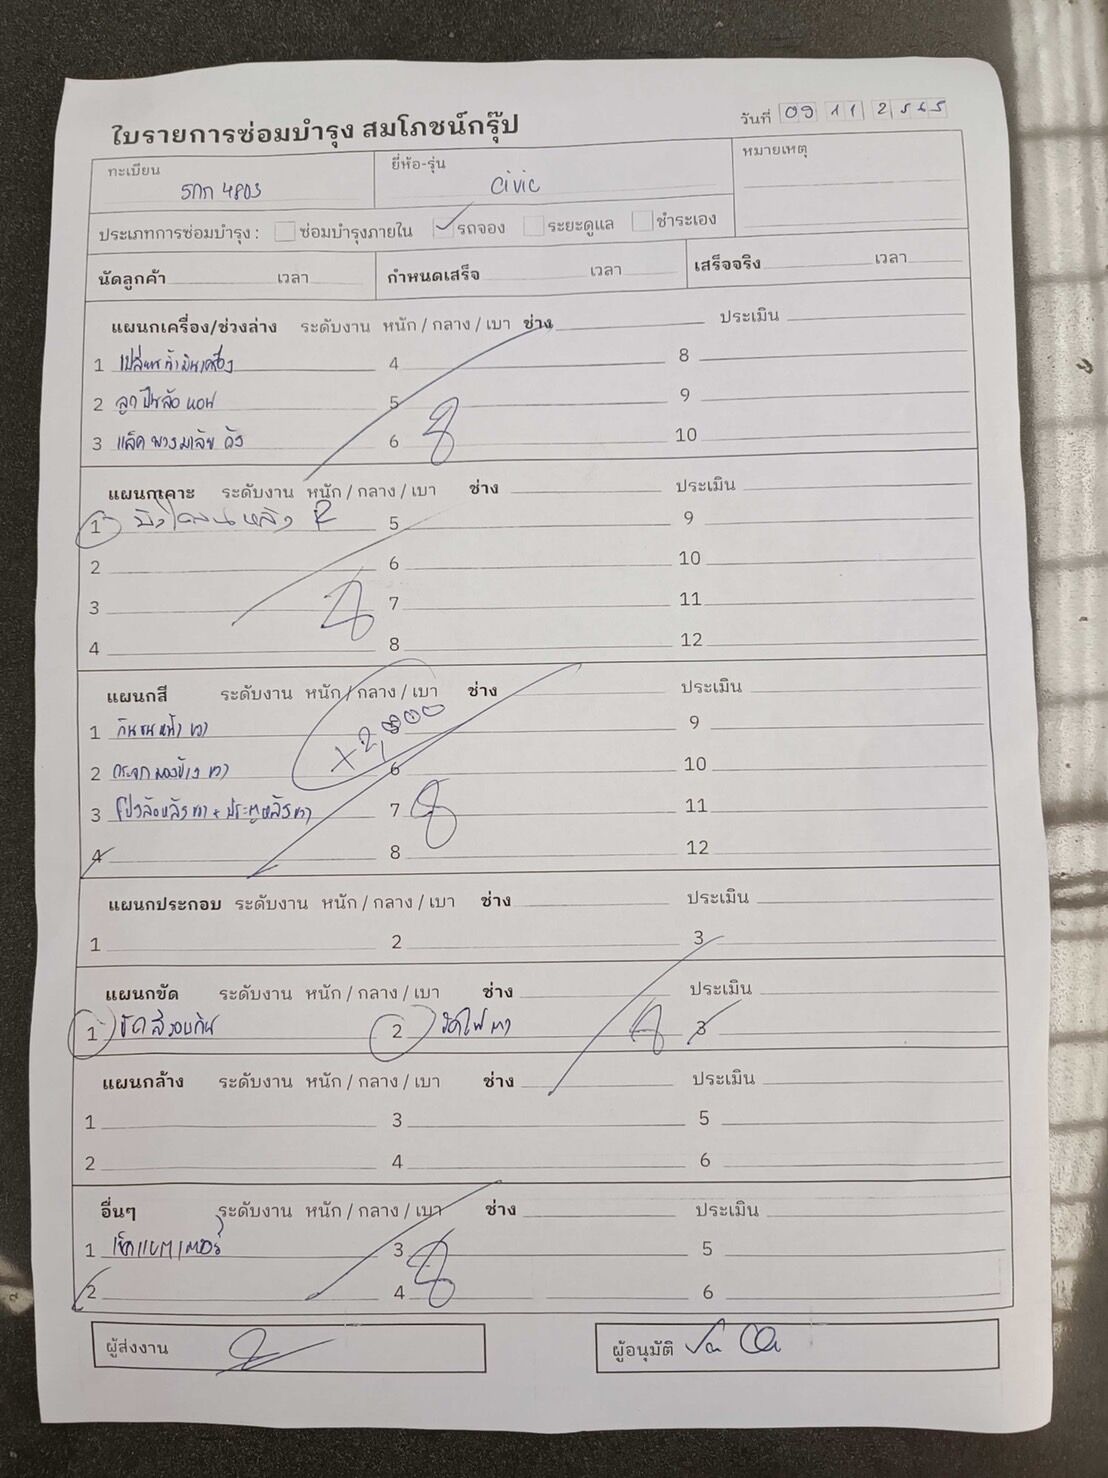 ใบรายการซ่อมบำรุง สมโภชน์กรุ๊ป
วันที่ 09 11 2565
ทะเบียน ยี่ห้อ-รุ่น หมายเหตุ
5กก 4803 civic
ประเภทการซ่อมบำรุง : ซ่อมบำรุงภายใน รถจอง ระยะดูแล ชำระเอง
นัดลูกค้า เวลา กำหนดเสร็จ เวลา เสร็จจริง เวลา
แผนกเครื่อง/ช่วงล่าง ระดับงาน หนัก / กลาง / เบา ช่าง ประเมิน
1 เปลี่ยนน้ำมันเครื่อง 4 8
2 ลูกปืนล้อหอน 5 9
3 แล็คพวงมาลัยดัง 6 10
แผนกเคาะ ระดับงาน หนัก / กลาง / เบา ช่าง ประเมิน
1 บังโคลนหลัง R 5 9
2 6 10
3 7 11
4 8 12
แผนกสี ระดับงาน หนัก / กลาง / เบา ช่าง ประเมิน
1 กันชนหน้าขวา 9
2 กระจกมองข้างขวา 6 10
3 โป่งล้อหลังขวา + ประตูหลังขวา 7 11
4 8 12
แผนกประกอบ ระดับงาน หนัก / กลาง / เบา ช่าง ประเมิน
1 2 3
แผนกขัด ระดับงาน หนัก / กลาง / เบา ช่าง ประเมิน
1 ขัดสีรอบคัน 2 ขัดไฟตา 3
แผนกล้าง ระดับงาน หนัก / กลาง / เบา ช่าง ประเมิน
1 3 5
2 4 6
อื่นๆ ระดับงาน หนัก / กลาง / เบา ช่าง ประเมิน
1 เช็คแบตเตอรี่ 3 5
2 4 6
ผู้ส่งงาน ผู้อนุมัติ